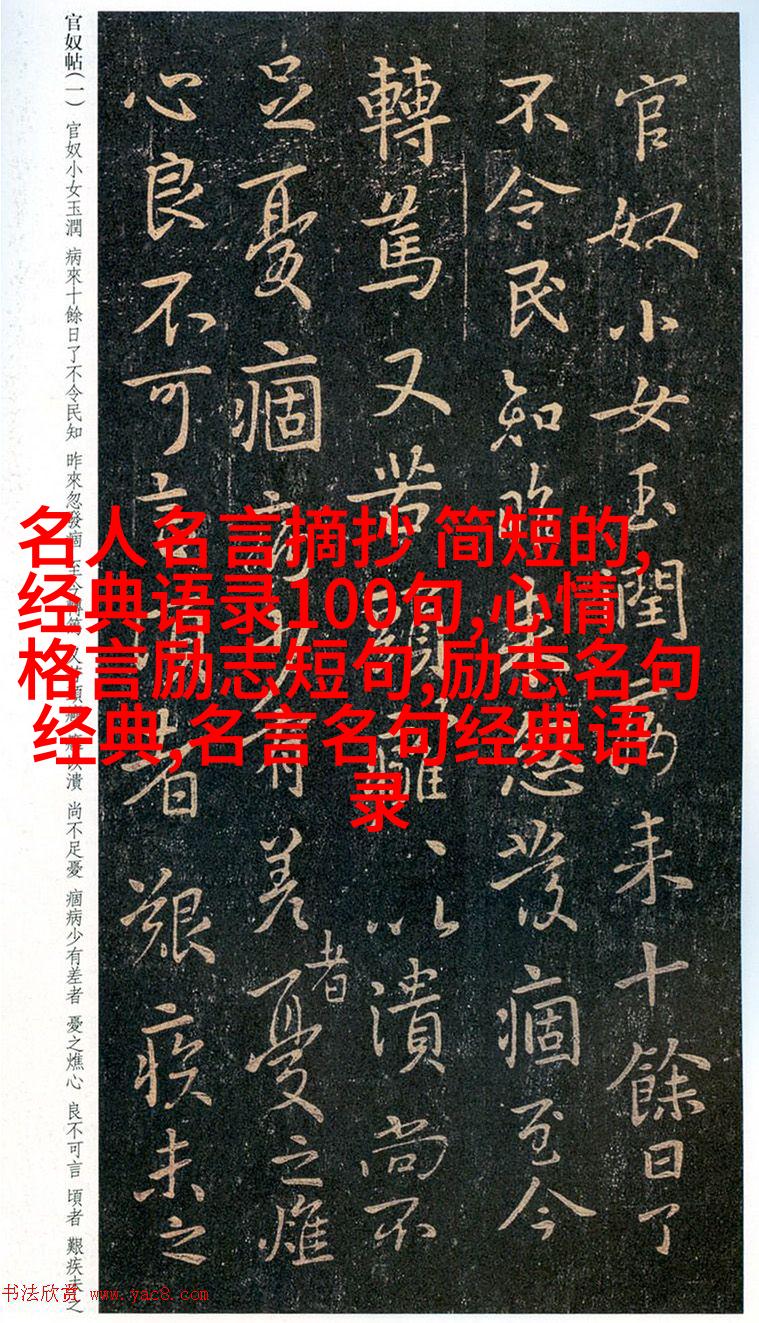 官奴小女玉潤病来十餘日了
不令民知昨来忽發痼至今
轉篤又苦頭癰、以潰尚不
足憂痼病少有差者憂之燋
心良不可言頃者艱疾未之
官奴帖(一) 官奴小女玉潤 病來十餘日了不令民知 昨來忽發痼 至今轉篤 又苦頭癰 癰以潰 尚不足憂 痼病少有差者 憂之燋心 良不可言 頃者 艱疾未之
名人名言摘抄 简短的,
经典语录100句,心情
格言励志短句,励志名句
经典,名言名句经典语
录
书法欣赏 www.yac8.com